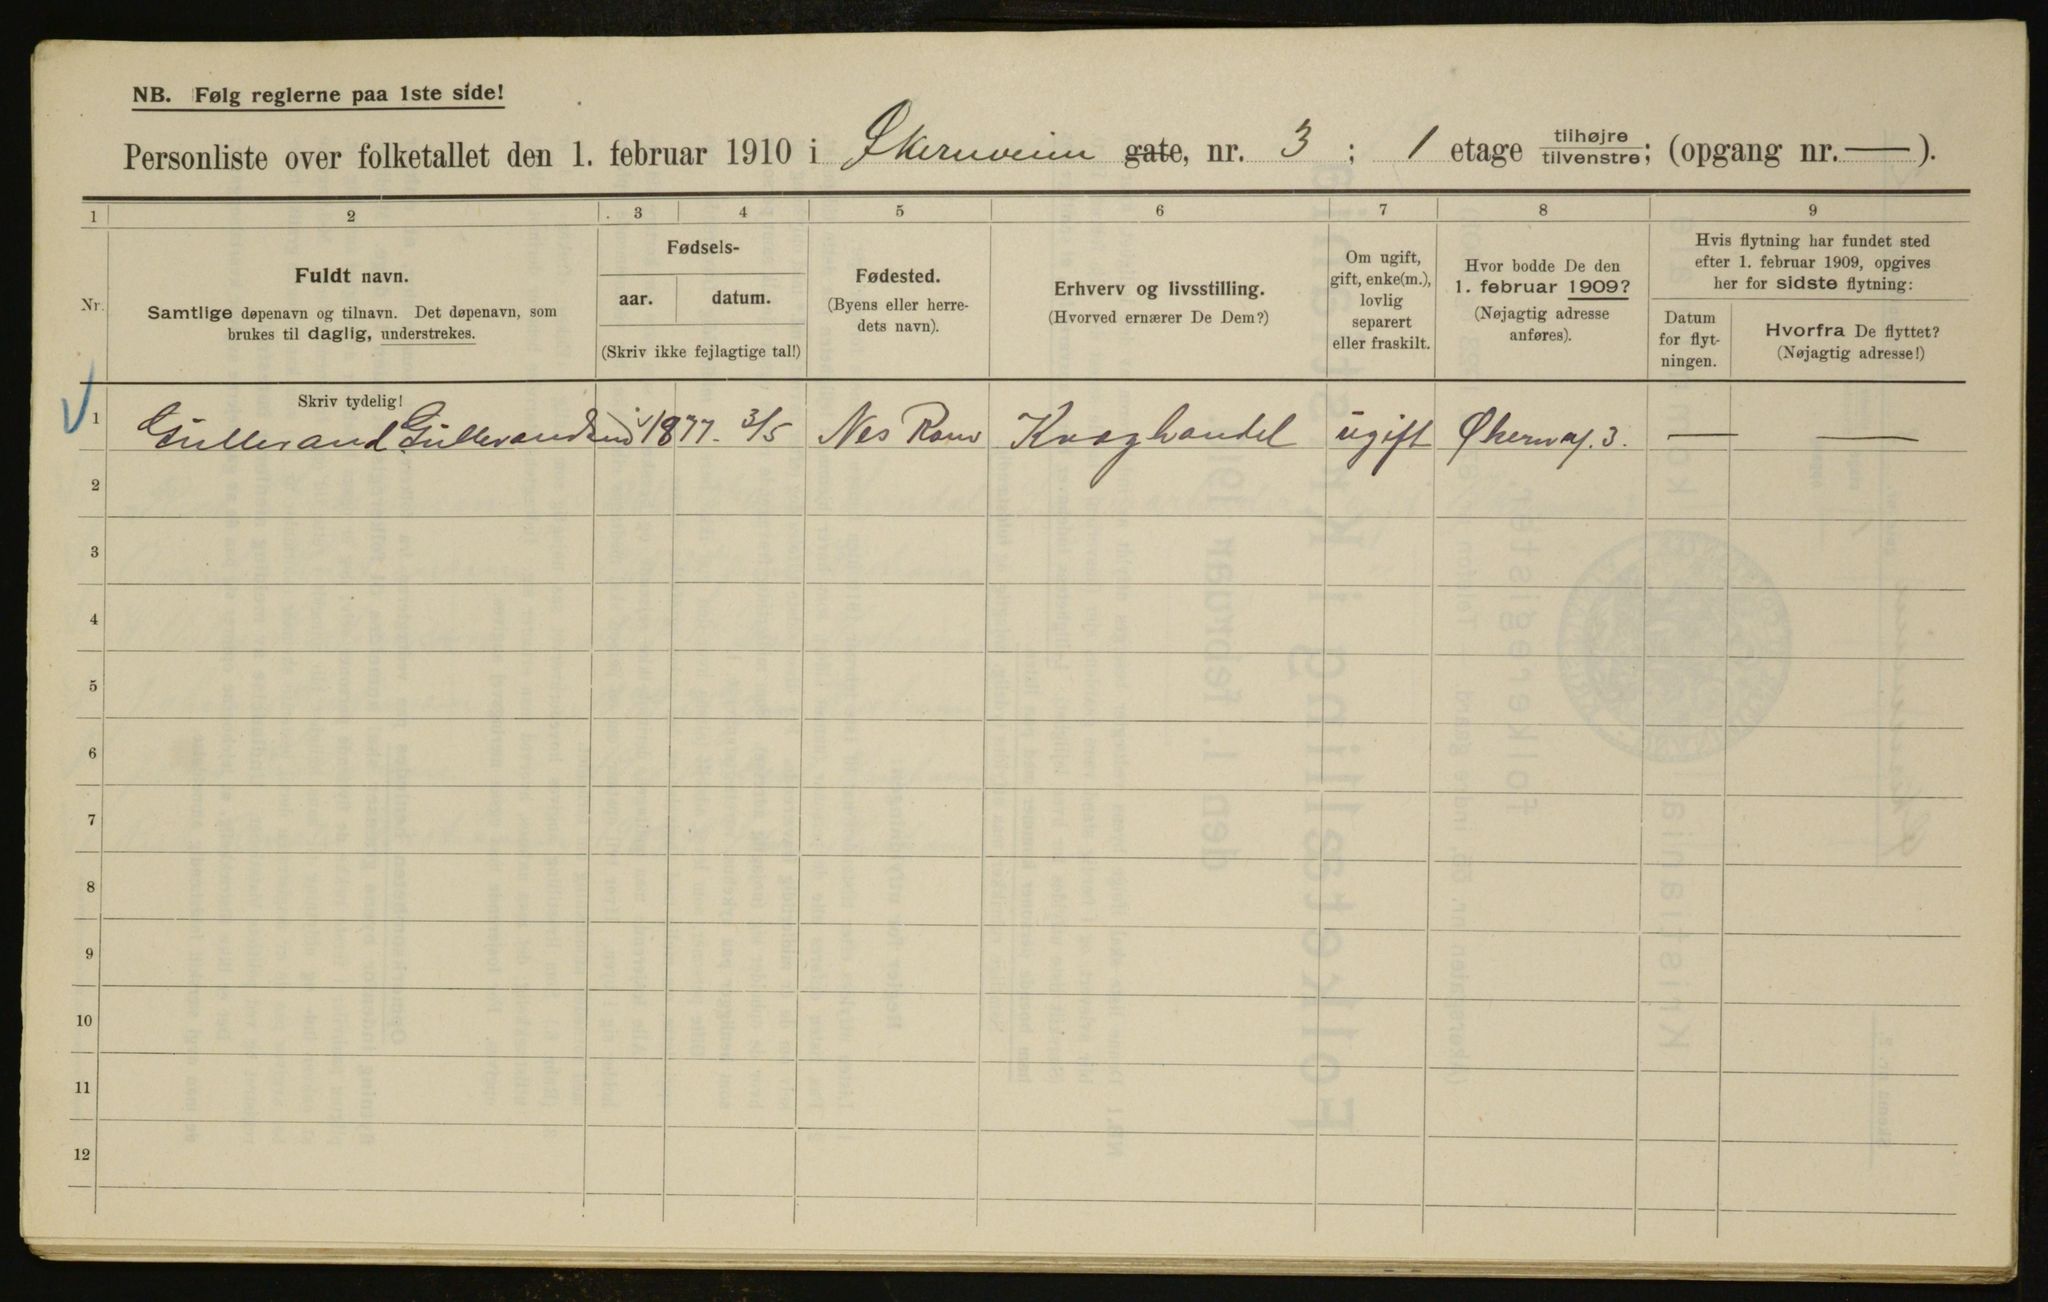 NB. Følg reglerne paa 1ste side!
Personliste over folketallet den 1. februar 1910 i Økernveien gate, nr. 3 ; 1 etage tilhøjre tilvenstre; (opgang nr. — ).
1 2 3 4 5 6 7 8 9
Nr.
Fuldt navn.
Samtlige døpenavn og tilnavn. Det døpenavn, som
brukes til daglig, understrekes.
Fødsels-
aar. datum.
(Skriv ikke fejlagtige tal!)
Fødested.
(Byens eller herre-
dets navn).
Erhverv og livsstilling.
(Hvorved ernærer De Dem?)
Om ugift,
gift, enke(m.),
lovlig
separert
eller fraskilt.
Hvor bodde De den
1. februar 1909?
(Nøjagtig adresse
anføres).
Hvis flytning har fundet sted
efter 1. februar 1909, opgives
her for sidste flytning:
Datum
for flyt-
ningen.
Hvorfra De flyttet?
(Nøjagtig adresse!)
Skriv tydelig!
1 Gullerand 1877. 3/5 Nes Kvæghandel ugift Økernv. 3. — —
2
3
4
5
6
7
8
9
10
11
12